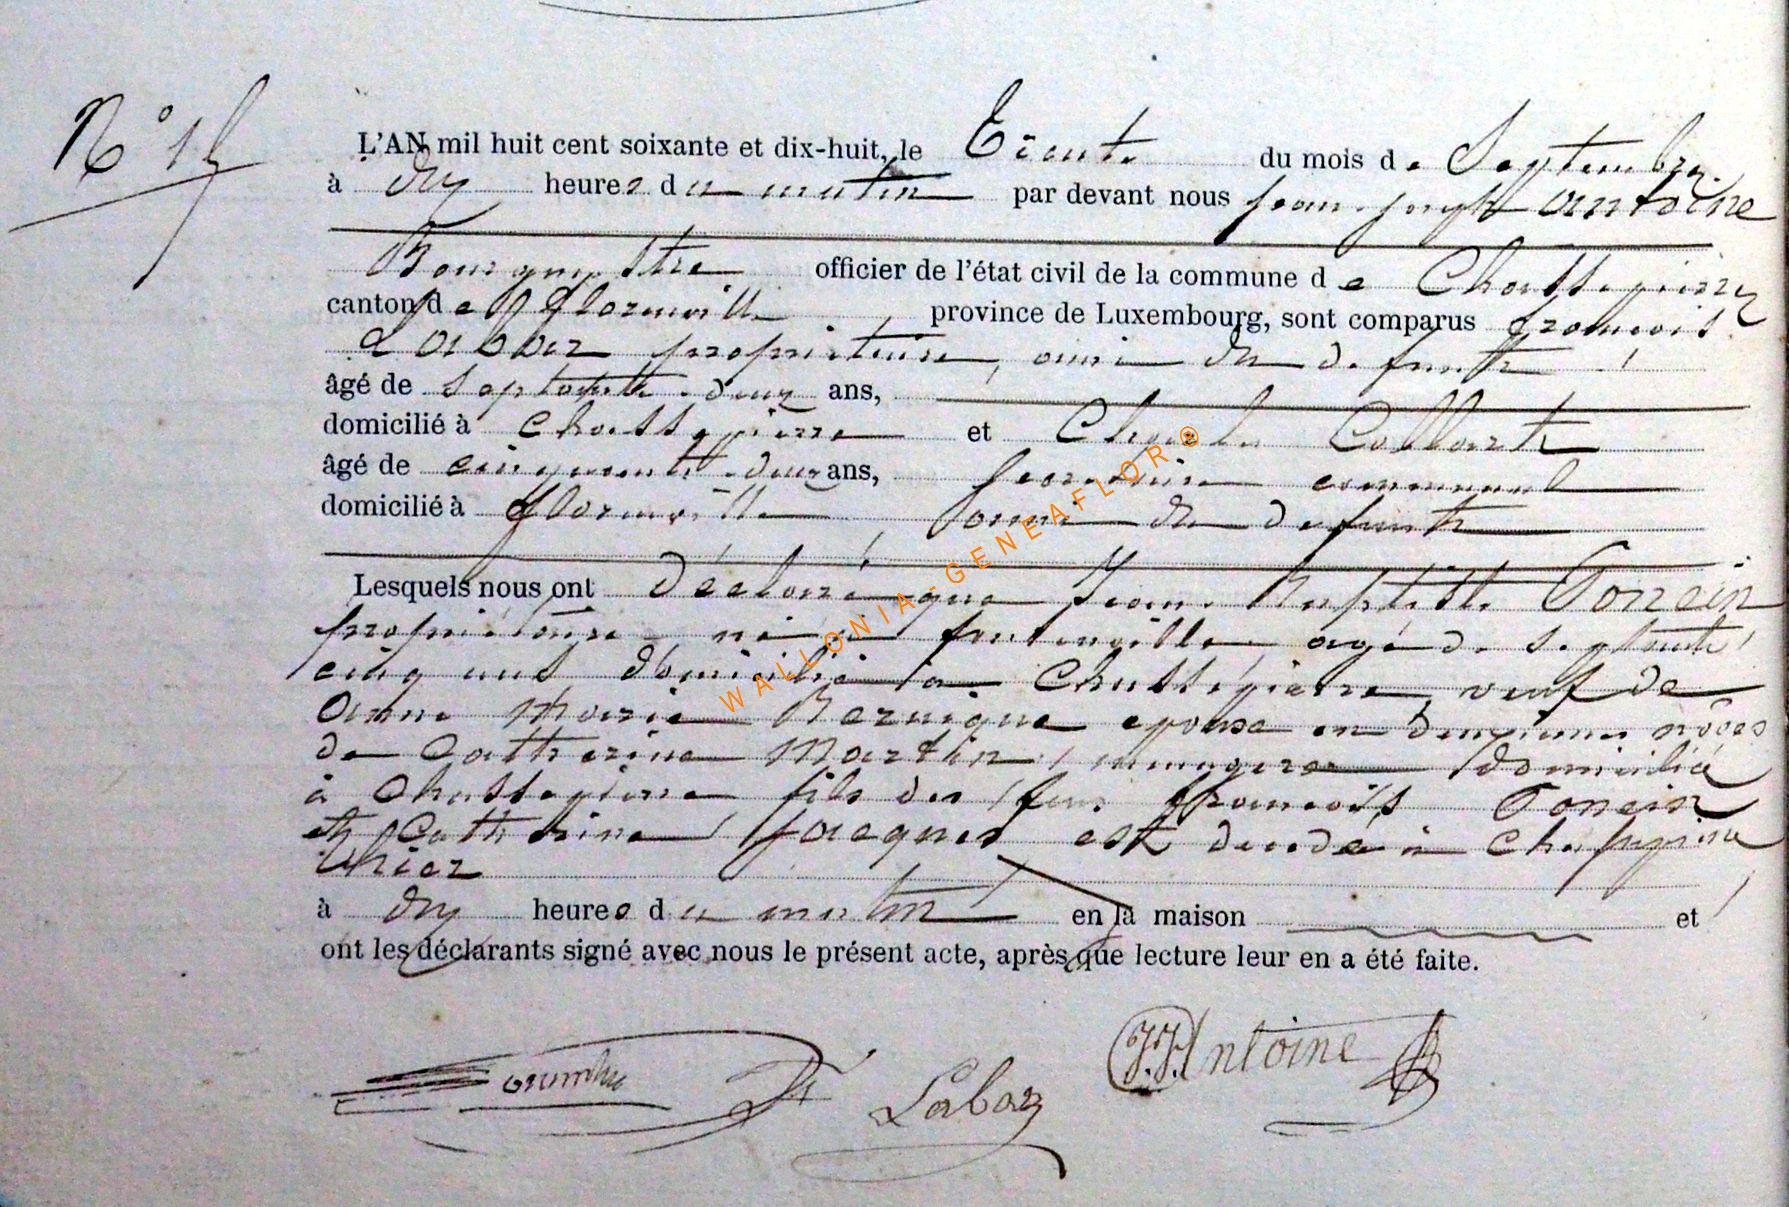 N° 15
L'AN mil huit cent soixante et dix-huit, le Trente du mois de Septembre
à dix heures du matin par devant nous Jean Joseph Antoine
Bourgmestre officier de l'état civil de la commune de Chassepierre
canton de Florenville province de Luxembourg, sont comparus François
Labbez propriétaire, ami du défunt
âgé de septante deux ans,
domicilié à Chassepierre et Charles Collart
âgé de cinquante deux ans, secrétaire communal
domicilié à Florenville, ami du défunt
Lesquels nous ont déclaré que Jean Baptiste Poncin
propriétaire né à fontenoille agé de septante
cinq ans domicilié à Chassepierre, veuf de
Anne Marie epoux en deuxième nôces
de Catherine Martin, menagere domiciliée
à Chassepierre fils des feus François Poncin
et Catherine Jacques est décédé à Chassepierre
hier
à dix heures du matin en la maison et
ont les déclarants signé avec nous le présent acte, après que lecture leur en a été faite.
J.J. Antoine
Labbez
WALLONIA-GENEAFLOR©